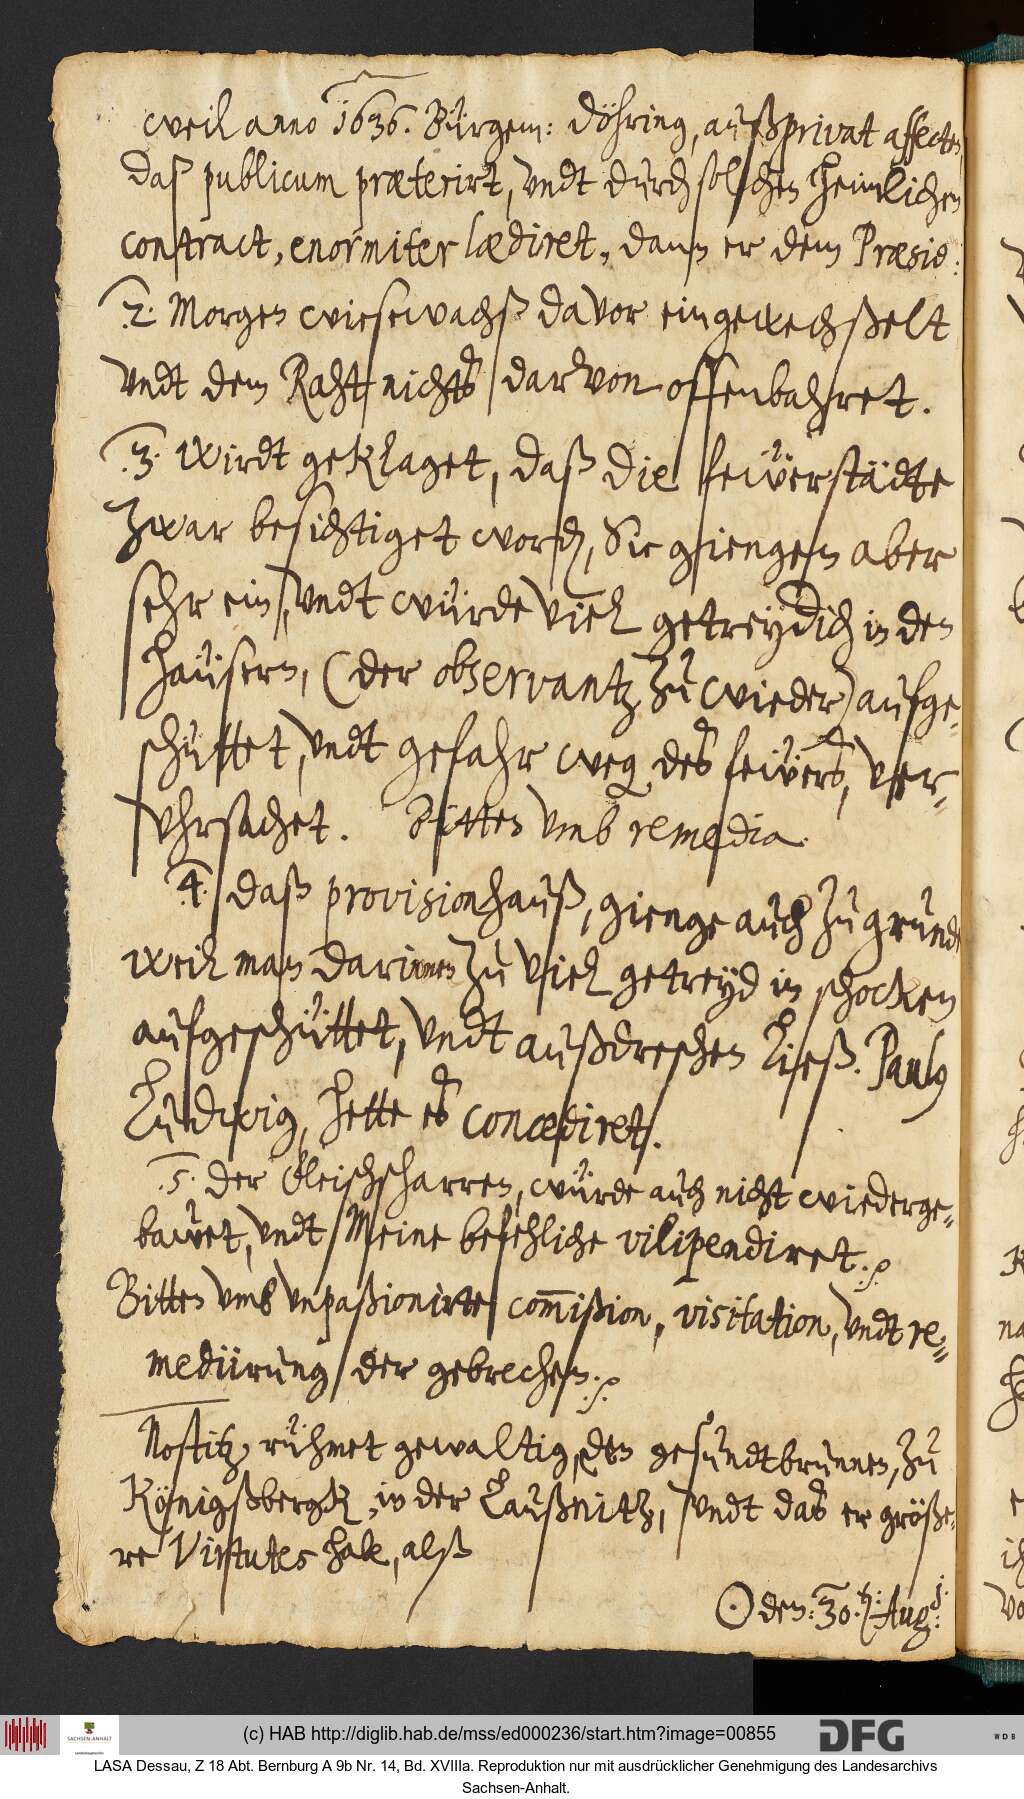 weil anno 1636. Bürgem: Döhring, auß privat affecten
daß publicum præterirt, vndt durch solchen heimlichen
contract, enormiter lædiret, dann er dem Præsid:
2. Morgen wiesewachß davor eingewechßelt
vndt dem Raht nichts darvon offenbahret.
3. Wirdt geklaget, daß die feẅerstädte
zwar besichtiget word, Sie giengen aber
sehr ein, vndt würde viel getreydich in den
häusern, (der observantz zu wieder) aufge=
schüttet, vndt gefahr weg des feẅers, ver=
vhrsachet. Bitten vmb remedia.
4. Daß provisionhauß, gienge auch zu grunde
weil man darinnen zu viel getreyd in schocken
aufgeschüttet, vndt außdreschen ließ. Paulus
Ludwig, hette es concediret.
5. Der fleischscharren, würde auch nicht wiederge=
bawet, vndt Meine befehliche vilipendiret.
Bitten vmb vnpaßionirte com̅ißion, visitation, vndt re=
mediirung der gebrechen.
Nostitz, rühmet gewaltig, den gesundtbrunnen, zu
Königßbergk, in der Laußnitz, vndt das er größe=
re Virtutes habe, alß
☉ den: 30. Augj:
(c) HAB http://diglib.hab.de/mss/ed000236/start.htm?image=00855
SACHSEN-ANHALT
DFG
WDB
LASA Dessau, Z 18 Abt. Bernburg A 9b Nr. 14, Bd. XVIIIa. Reproduktion nur mit ausdrücklicher Genehmigung des Landesarchivs
Sachsen-Anhalt.